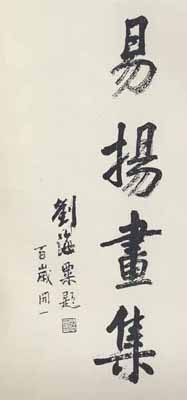 易揚畫集
劉海粟題
百歲開一